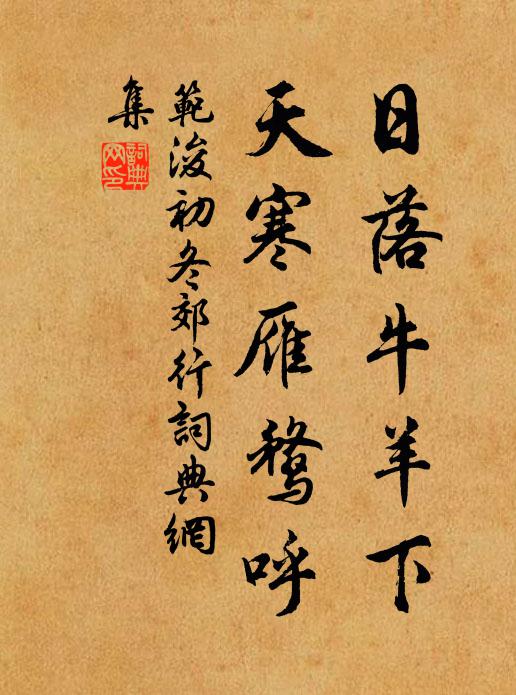 日落牛羊下
天寒雁鶩呼
範浚初冬郊行詞典網
集
詞典
网印